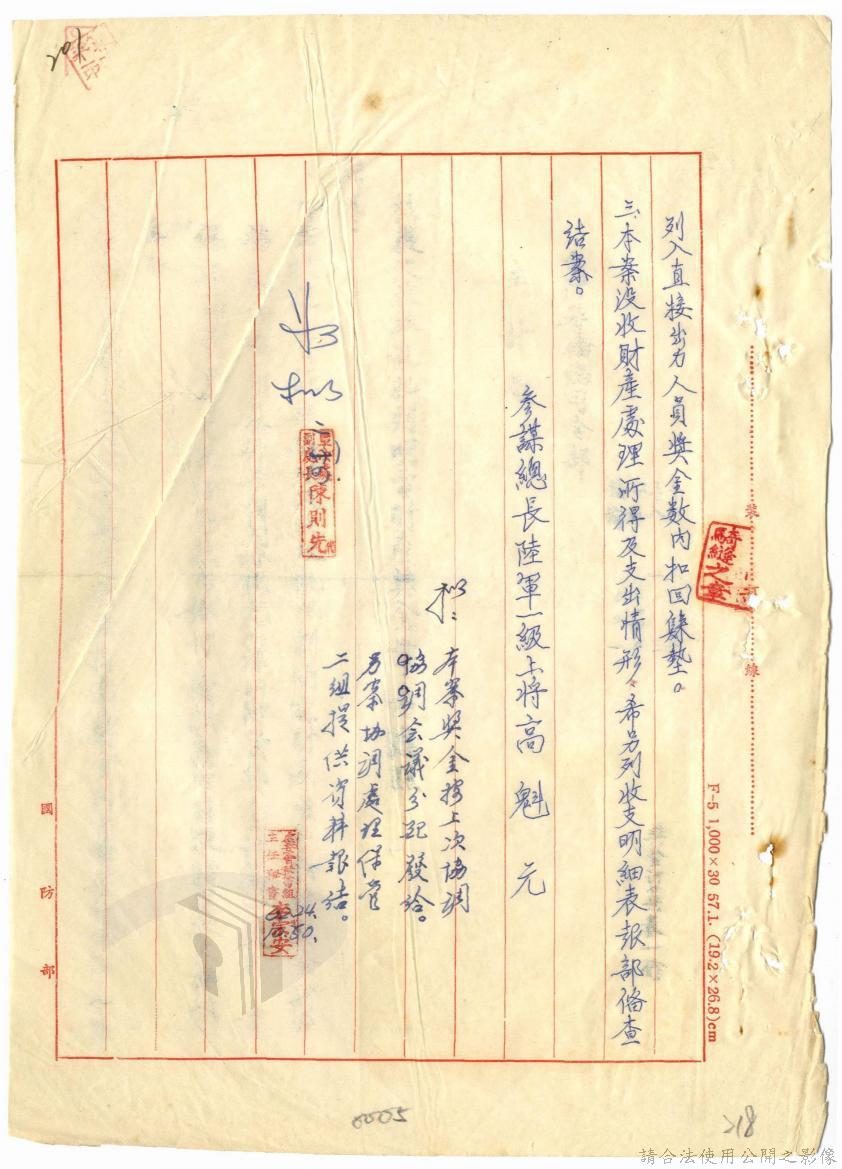 列入直接出力人員獎金數內扣回歸墊。
三、本案没收財產處理所得及支出情形，希另列收支明細表報部俻查
結案。
參謀總長陸軍一級上將高魁元
擬：
本案獎金按上次協調
協調會議分配發給。
另案協調處理保管
二組提供資料報結。
如擬
陳則先
24.
10.50.
裝
訂
線
騎縫之章
F-5 1,000×30 57.1. (19.2×26.8)cm
國防部
201
0005
218
請合法使用公開之影像